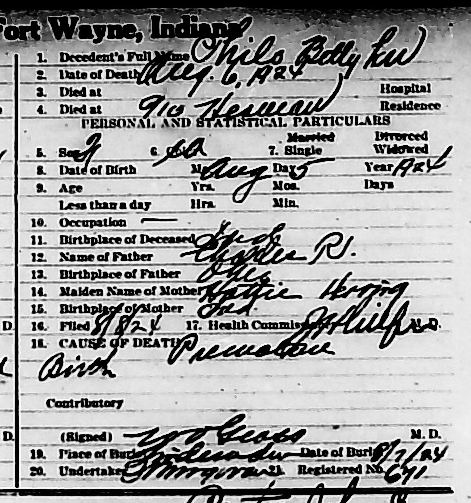 Fort Wayne, Indiana
1. Decedent's Full Name Chils Betty Lou
2. Date of Death Aug. 6, 1924
3. Died at Hospital
4. Died at 910 Residence
PERSONAL AND STATISTICAL PARTICULARS
Married Divorced
5. Sex 6. 7. Single Widowed
8. Date of Birth M Aug Day 5 Year 1924
9. Age Yrs. Mos. Days
Less than a day Hrs. Min.
10. Occupation —
11. Birthplace of Deceased Ind.
12. Name of Father Charles R.
13. Birthplace of Father
14. Maiden Name of Mother Hattie Herring
15. Birthplace of Mother Ind
16. Filed 8/8/24 17. Health Commis M.D.
18. CAUSE OF DEATH Premature
Birth
Contributory
(Signed) M. D.
19. Place of Burial Date of Burial 8/7/24
20. Undertaker 21. Registered No. 671